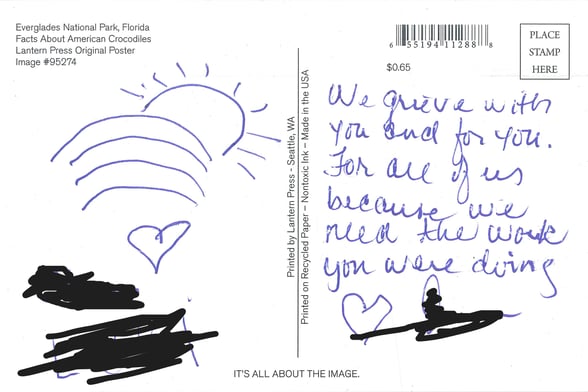 Everglades National Park, Florida
Facts About American Crocodiles
Lantern Press Original Poster
Image #95274
6 55194 11288 8
$0.65
PLACE
STAMP
HERE
We grieve with
you and for you.
For all of us
because we
need the work
you were doing
Printed by Lantern Press - Seattle, WA
Printed on Recycled Paper – Nontoxic Ink – Made in the USA
IT'S ALL ABOUT THE IMAGE.